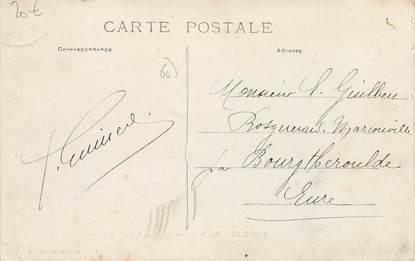 20€
CARTE POSTALE
Correspondance
Adresse
60
Monsieur
Bosguerard Marcouville
par Bourgtheroulde
Eure